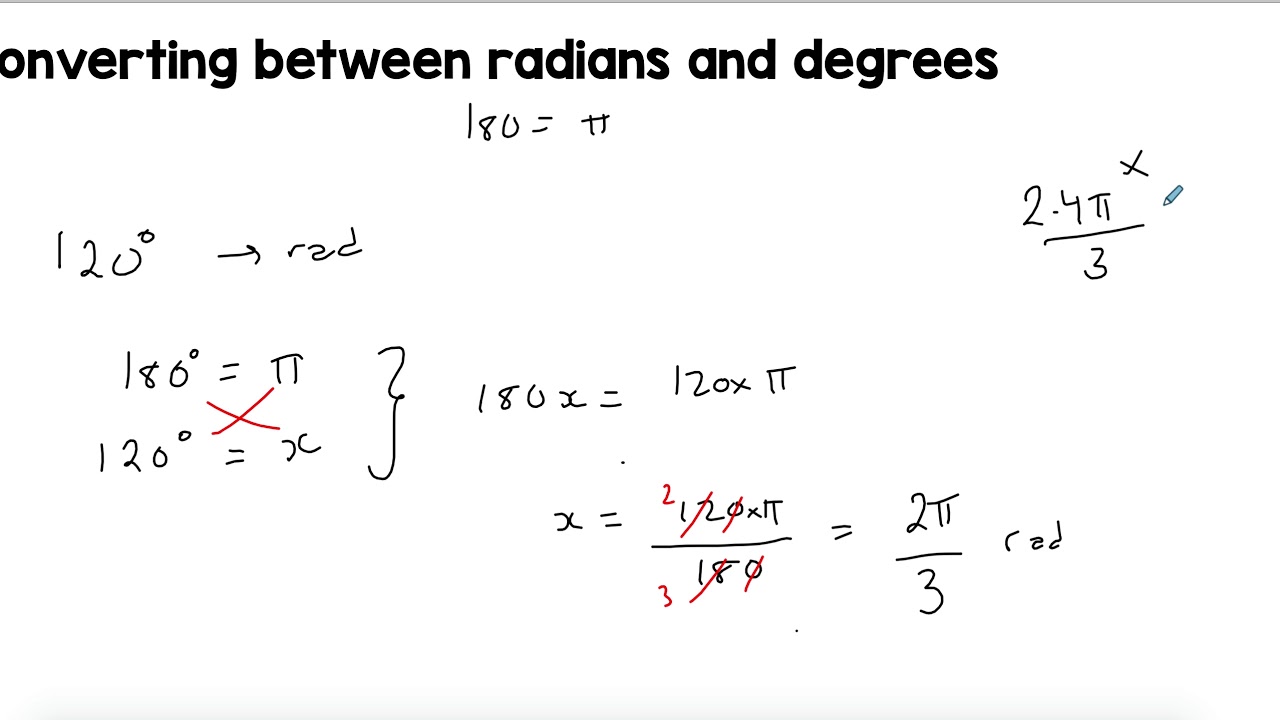 onverting between radians and degrees
180 = π
x
2.4π
3
120° → rad
180° = π
120° = x
180x = 120x π
x = 120xπ / 180 = 2π / 3 rad
2
3